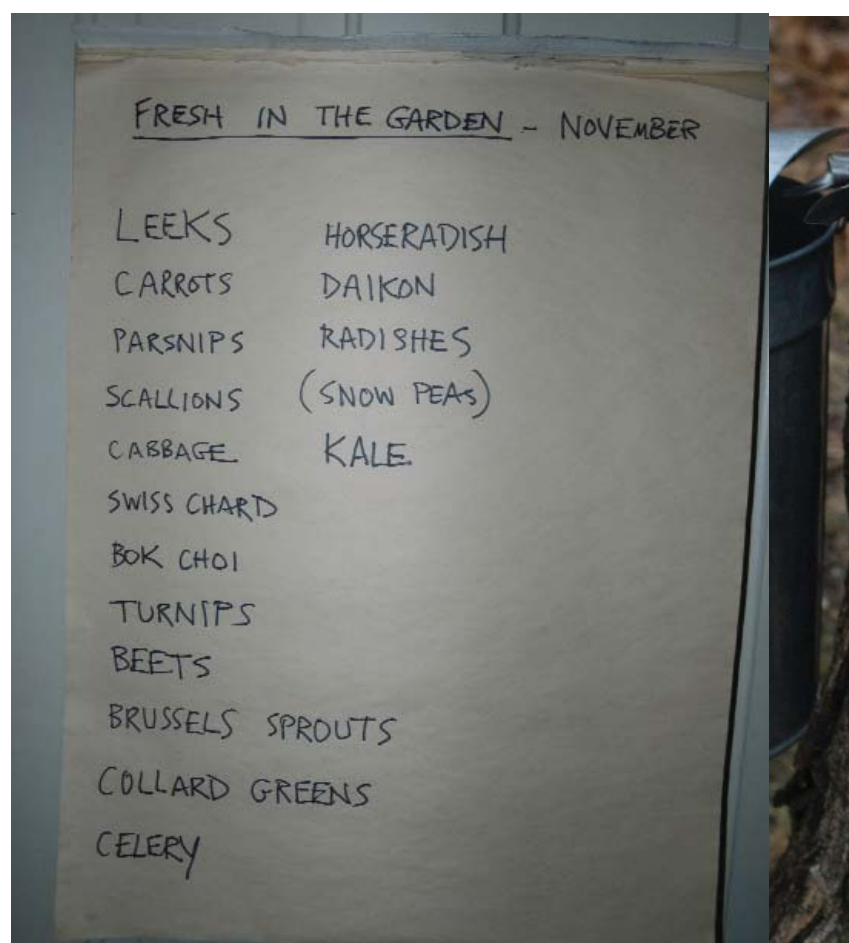 FRESH IN THE GARDEN - NOVEMBER
LEEKS
CARROTS
PARSNIPS
SCALLIONS
CABBAGE
SWISS CHARD
BOK CHOI
TURNIPS
BEETS
BRUSSELS SPROUTS
COLLARD GREENS
CELERY
HORSERADISH
DAIKON
RADISHES
(SNOW PEAS)
KALE